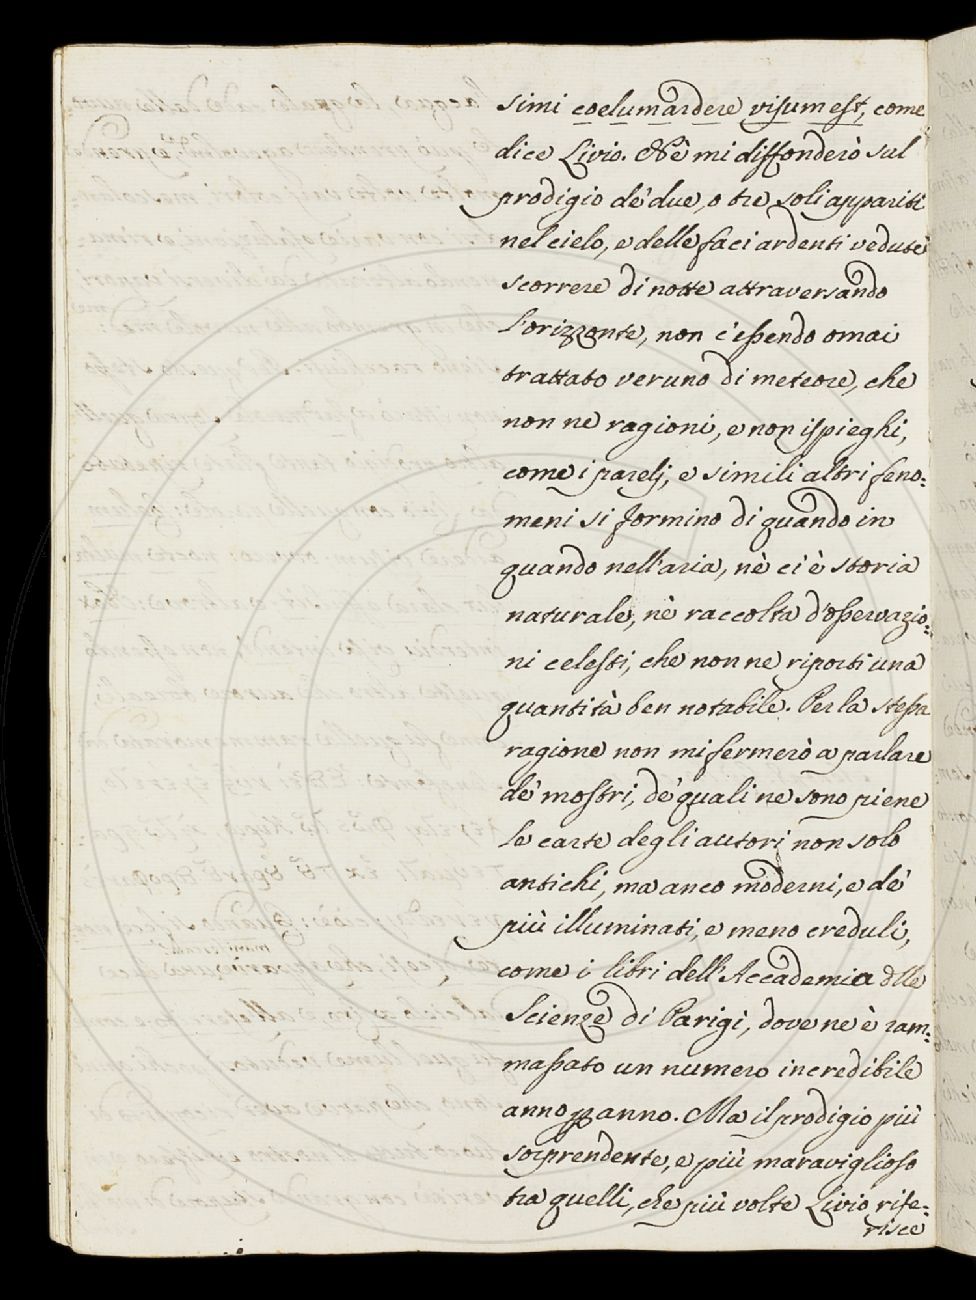 simi coelum ardere visum est, come
dice Livio. Nè mi diffonderò sul
prodigio de' due, o tre soli appariti
nel cielo, e delle faci ardenti vedute
scorrere di notte attraversando
l'orizzonte, non c'essendo omai
trattato veruno di meteore, che
non ne ragioni, e non ispieghi,
come i parelj, e simili altri feno:
meni si formino di quando in
quando nell'aria, nè ci è storia
naturale, nè raccolta d'osservazio:
ni celesti, che non ne riporti una
quantità ben notabile. Per la stessa
ragione non mi fermerò a parlare
de' mostri, de' quali ne sono piene
le carte degli autori non solo
antichi, ma anco moderni, e de'
più illuminati, e meno creduli,
come i libri dell'Accademia dlle
Scienze di Parigi, dove ne è ram:
massato un numero incredibile
anno p anno. Ma il prodigio più
sorprendente, e più maraviglioso
tra quelli, che più volte Livio rife:
risce